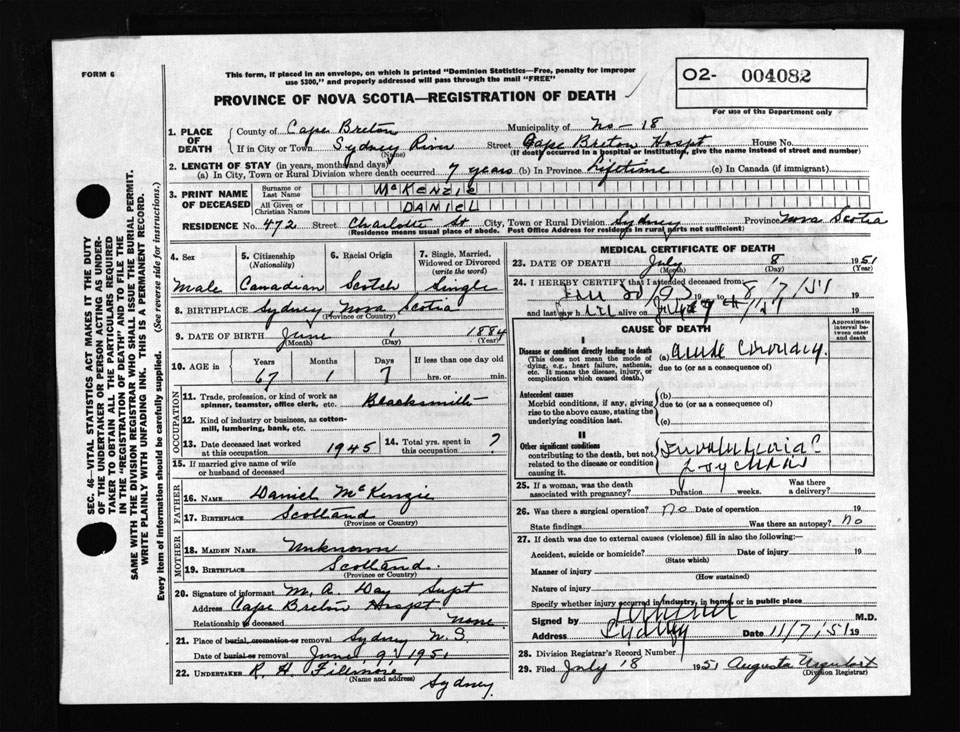 FORM 6
This form, if placed in an envelope, on which is printed "Dominion Statistics—Free, penalty for improper
use $300," and properly addressed will pass through the mail "FREE"
PROVINCE OF NOVA SCOTIA—REGISTRATION OF DEATH
O2- 004082
For use of the Department only
SEC. 46—VITAL STATISTICS ACT MAKES IT THE DUTY
OF THE UNDERTAKER OR PERSON ACTING AS UNDER-
TAKER TO OBTAIN ALL THE PARTICULARS REQUIRED
IN THE "REGISTRATION OF DEATH" AND TO FILE THE
SAME WITH THE DIVISION REGISTRAR WHO SHALL ISSUE THE BURIAL PERMIT.
WRITE PLAINLY WITH UNFADING INK. THIS IS A PERMANENT RECORD.
Every item of information should be carefully supplied. (See reverse side for instructions.)
1. PLACE OF DEATH
County of Cape Breton Municipality of No - 18
If in City or Town Sydney River Street Cape Breton Hospt House No.
(Name) (If death occurred in a hospital or institution, give the name instead of street and number)
2. LENGTH OF STAY (in years, months and days)
(a) In City, Town or Rural Division where death occurred 7 years (b) In Province Lifetime (c) In Canada (if immigrant)
3. PRINT NAME OF DECEASED
Surname or Last Name McKENZIE
All Given or Christian Names DANIEL
RESIDENCE No. 472 Street Charlotte St City, Town or Rural Division Sydney Province Nova Scotia
(Residence means usual place of abode. Post Office Address for residents in rural parts not sufficient)
4. Sex
Male
5. Citizenship (Nationality)
Canadian
6. Racial Origin
Scotch
7. Single, Married, Widowed or Divorced (write the word)
Single
8. BIRTHPLACE Sydney Nova Scotia
(Province or Country)
9. DATE OF BIRTH June 1 1884
(Month) (Day) (Year)
10. AGE in Years Months Days If less than one day old
67 1 7 hrs. or min.
OCCUPATION
11. Trade, profession, or kind of work as
spinner, teamster, office clerk, etc. Blacksmith
12. Kind of industry or business, as cotton-
mill, lumbering, bank, etc.
13. Date deceased last worked at this occupation 1945
14. Total yrs. spent in this occupation ?
15. If married give name of wife
or husband of deceased
FATHER
16. NAME Daniel McKenzie
17. BIRTHPLACE Scotland
(Province or Country)
MOTHER
18. MAIDEN NAME Unknown
19. BIRTHPLACE Scotland.
(Province or Country)
20. Signature of informant M. A. Day Supt
Address Cape Breton Hospt
Relationship to deceased none
21. Place of burial, cremation or removal Sydney N.S.
Date of burial or removal June 9, 1951
22. UNDERTAKER R. H. Fillmore
(Name and address) Sydney.
MEDICAL CERTIFICATE OF DEATH
23. DATE OF DEATH July 8 1951
(Month) (Day)
24. I HEREBY CERTIFY that I attended deceased from
19 to 8/7/51 19
and last saw h alive on 19
CAUSE OF DEATH
Approximate interval between onset and death
I
Disease or condition directly leading to death
(This does not mean the mode of
dying, e.g., heart failure, asthenia,
etc. It means the disease, injury, or
complication which caused death.)
(a) Acute Coronary.
due to (or as a consequence of)
Antecedent causes
Morbid conditions, if any, giving
rise to the above cause, stating the
underlying condition last.
(b)
due to (or as a consequence of)
(c)
II
Other significant conditions
contributing to the death, but not
related to the disease or condition
causing it.
25. If a woman, was the death
associated with pregnancy? Duration weeks. Was there a delivery?
26. Was there a surgical operation? no Date of operation 19
State findings Was there an autopsy? no
27. If death was due to external causes (violence) fill in also the following:—
Accident, suicide or homicide? Date of injury 19
(State which)
Manner of injury
(How sustained)
Nature of injury
Specify whether injury occurred in industry, in home or in public place
Signed by M.D.
Address Sydney Date 11/7/51 19
28. Division Registrar's Record Number
29. Filed July 18 1951 Augusta Urquhart
(Division Registrar)